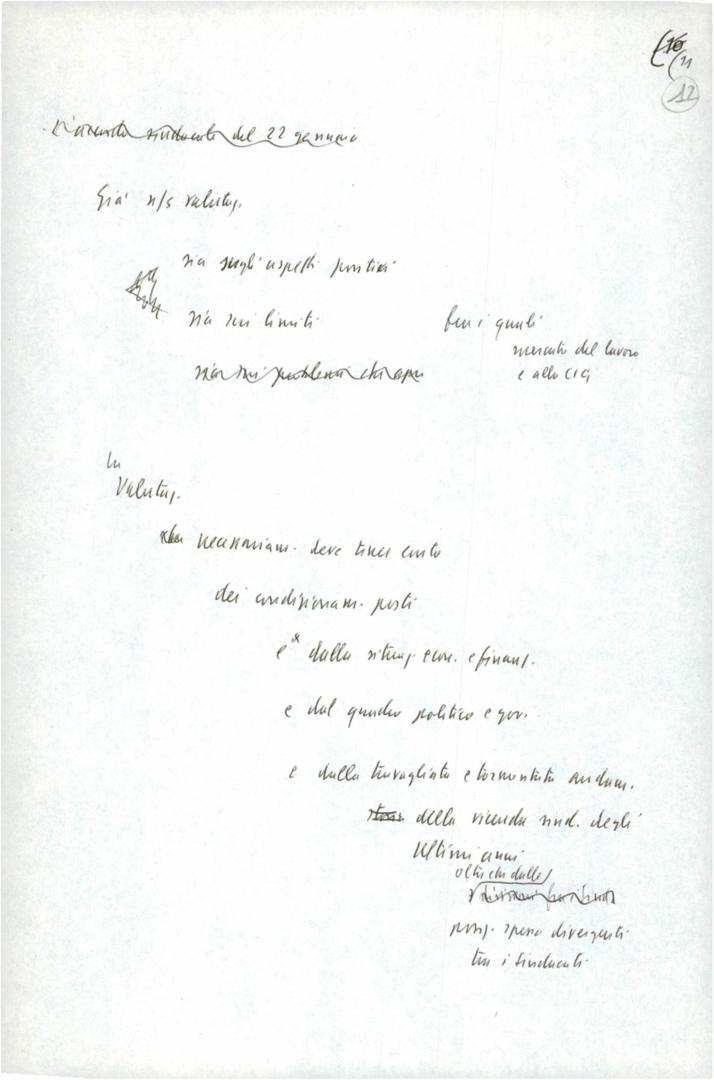 12
L'accordo sindacale del 22 gennaio
Già n/s valutaz.
sia sugli aspetti positivi
sia sui limiti
fra i quali
mercato del lavoro
e alla CIG
sia sui problemi che apre
La
Valutaz.
necessariam. deve tener conto
dei condizionam. posti
e dalla situaz. econ. e finanz.
e dal quadro politico e gov.
e dalla travagliata e tormentata andam.
della vicenda sind. degli
ultimi anni
oltre che dalle
posiz. spesso divergenti
tra i sindacati